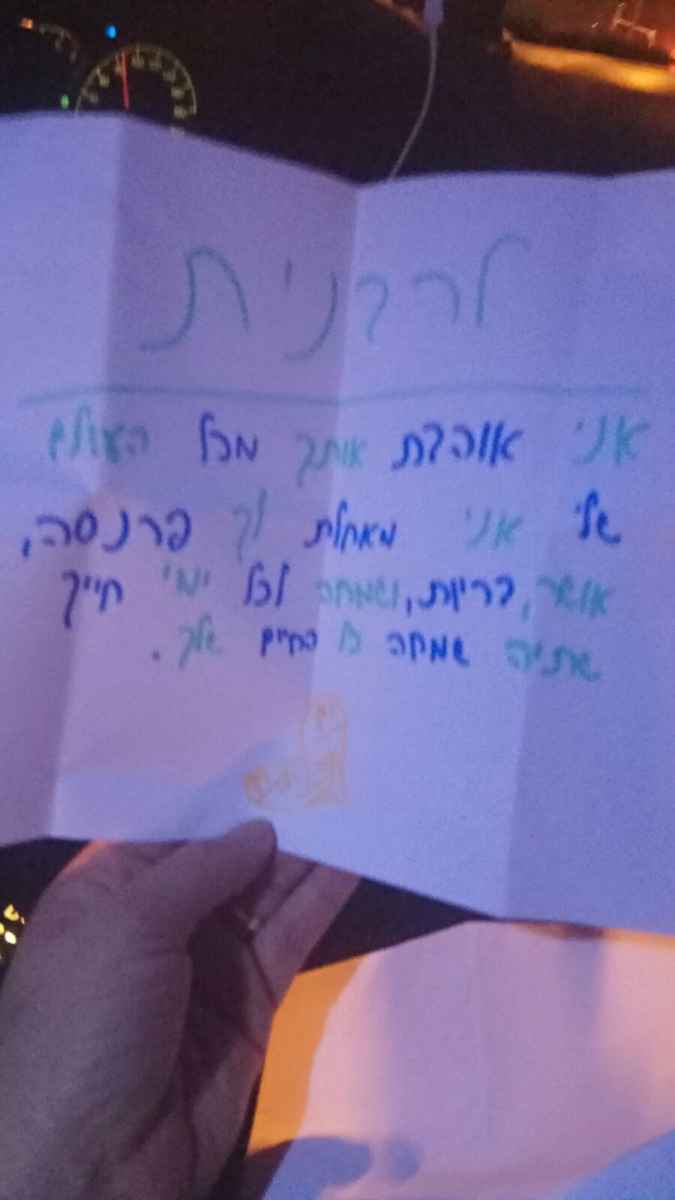 לרבנית
אני אוהבת אותך מכל העולם
שלי אני מאחלת לך פרנסה,
אושר, בריות, ושמחה לכל ימי חייך
שתיה שמחה כל החיים שלך.